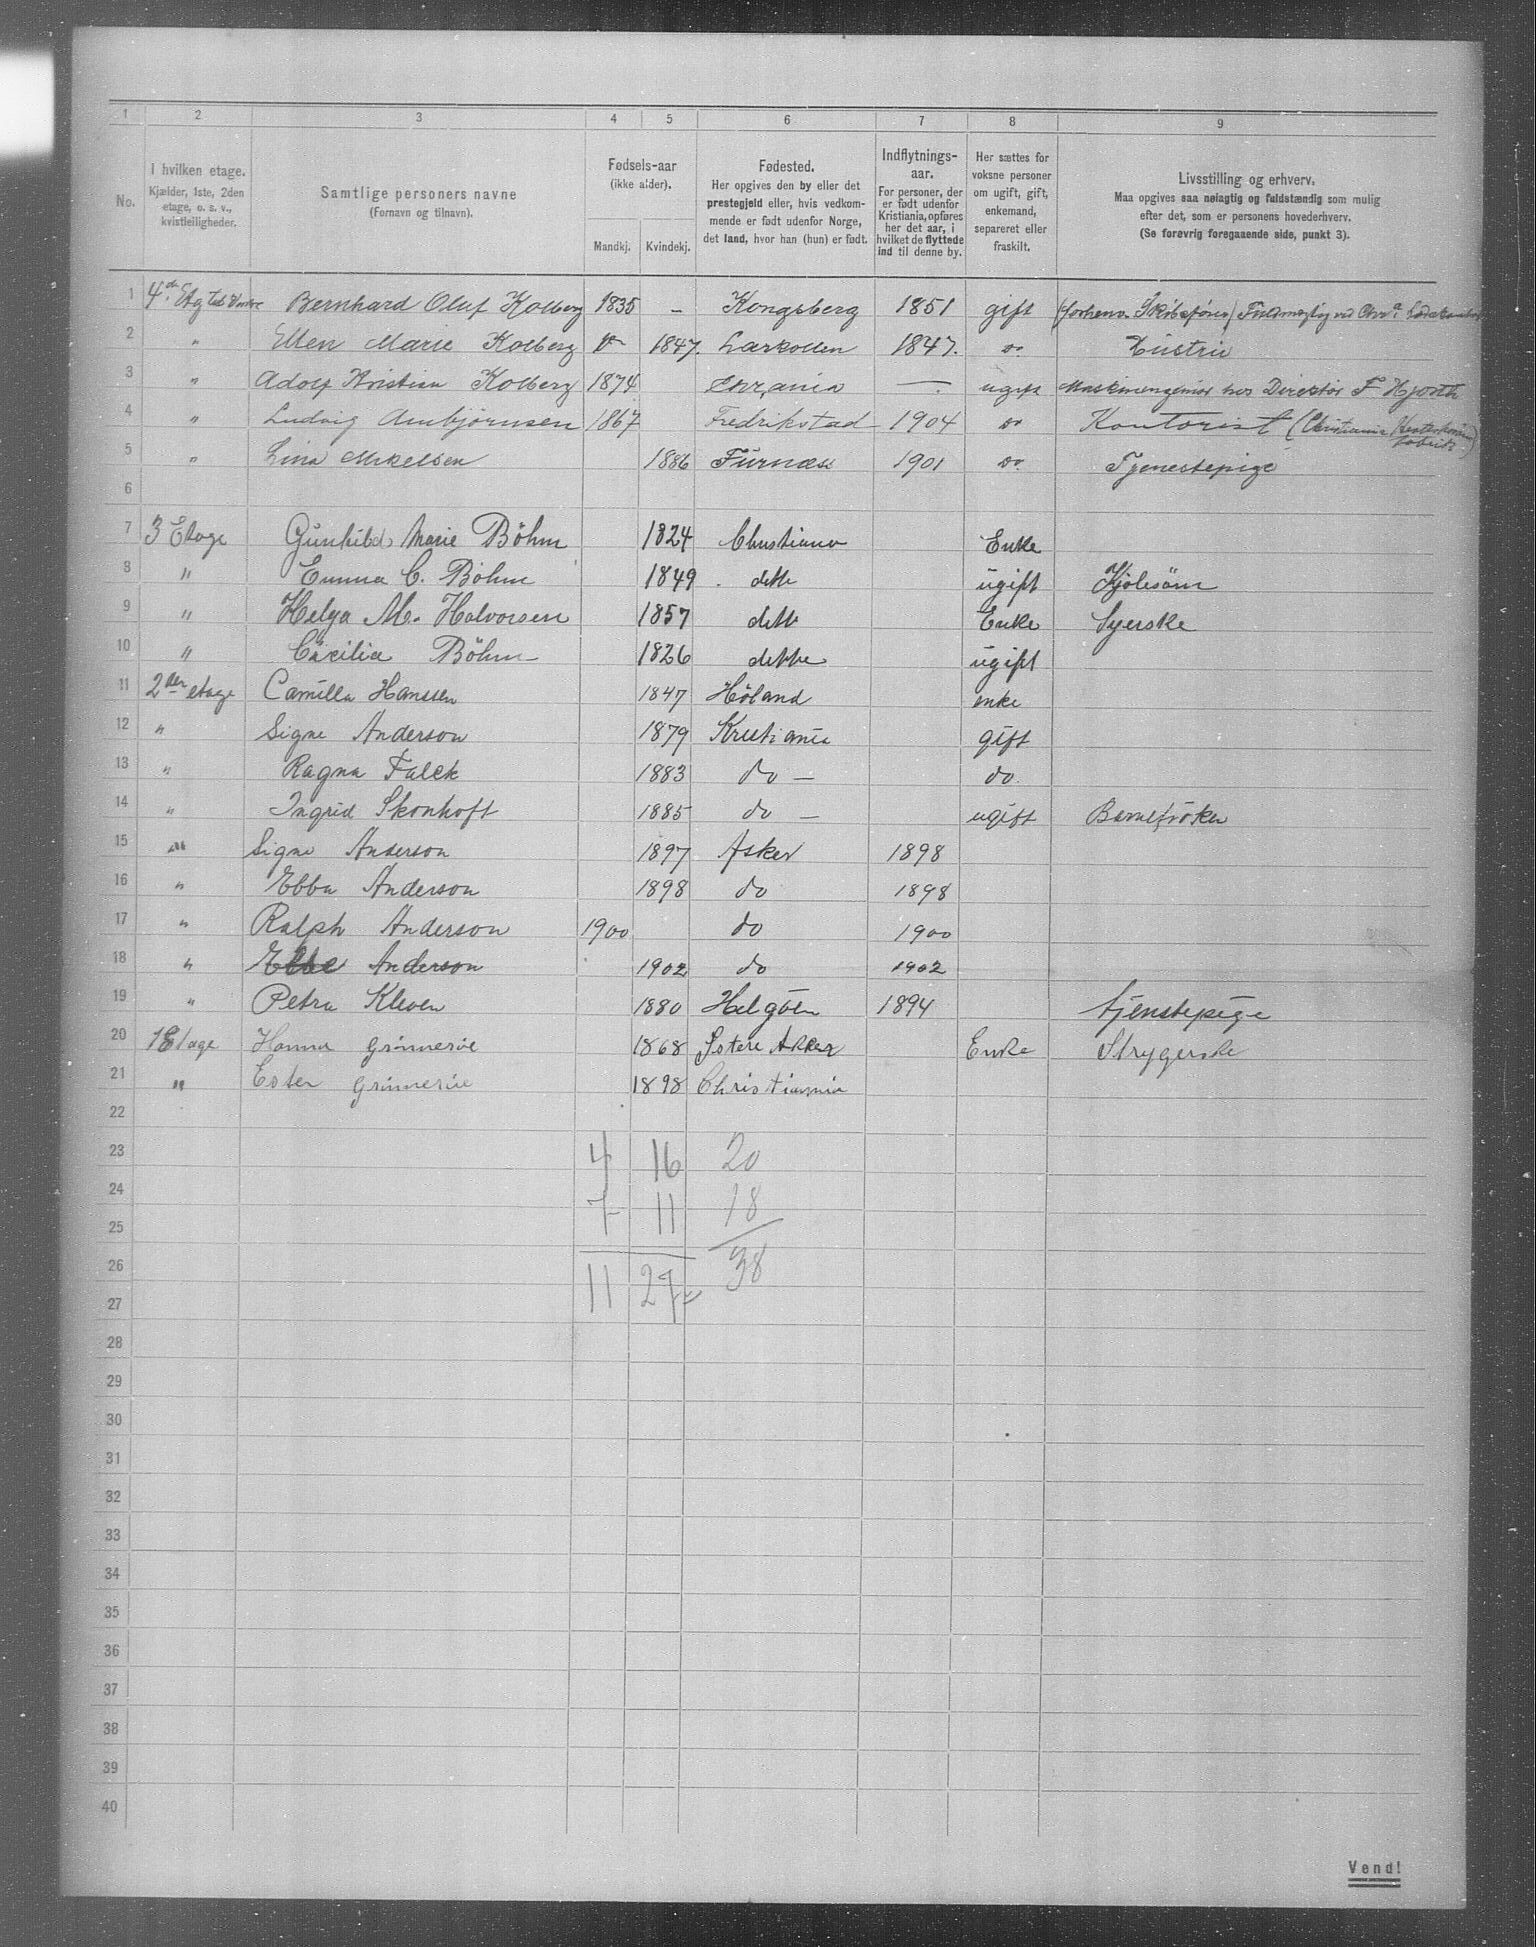 1 2 3 4 5 6 7 8 9
No.
I hvilken etage.
Kjælder, 1ste, 2den
etage, o. s. v.,
kvistleiligheder.
Samtlige personers navne
(Fornavn og tilnavn).
Fødsels-aar
(ikke alder).
Mandkj. Kvindekj.
Fødested.
Her opgives den by eller det
prestegjeld eller, hvis vedkom-
mende er født udenfor Norge,
det land, hvor han (hun) er født.
Indflytnings-
aar.
For personer, der
er født udenfor
Kristiania, opføres
her det aar, i
hvilket de flyttede
ind til denne by.
Her sættes for
voksne personer
om ugift, gift,
enkemand,
separeret eller
fraskilt.
Livsstilling og erhverv.
Maa opgives saa nøiagtig og fuldstændig som mulig
efter det, som er personens hovederhverv.
(Se forøvrig foregaaende side, punkt 3).
1 4de Etg Bernhard Oluf Kolberg 1835 – Kongsberg 1851 gift (forhenv. Fuldmægtig ved Chra
2 " Ellen Marie Kolberg 1847. Larkollen 1847. do Hustru
3 " Adolf Kristian Kolberg 1874 Chrania — ugift Maskiningeniør hos Direktør F Hjorth
4 " Ludvig Ambjørnsen 1867 Fredrikstad 1904 do Kontorist (Christiania Hesteskosøm
fabrik)
5 " Lina Mikelsen 1886 Furnæss 1901 do Tjenestepige
6
7 3 Etage Gunhild Marie Böhm 1824 Christiania Enke
8 " Emma C. Böhm 1849 dette ugift Kjolesöm
9 " Helga M. Halvorsen 1857 dette Enke Syerske
10 " Cäcilia Böhm 1826 dette ugift
11 2den etage Camilla Hanssen 1847 Höland enke
12 " Signe Anderson 1879 Kristiania gift
13 " Ragna Falck 1883 do — do.
14 " Ingrid Skonhoft 1885 do — ugift Barnefröken
15 " Signe Anderson 1897 Asker 1898
16 " Ebba Anderson 1898 do 1898
17 " Ralph Anderson 1900 do 1900
18 " Anderson 1902 do 1902
19 " Petra Kleven 1880 Helgöen 1894 tjenstepige
20 1 Etage Hanna Grinneröe 1868 Østere Akker Enke Strygerske
21 " Ester Grinneröe 1898 Christiannia
22
23 4 16 20
24
25 7 11 18
26
27 11 27 38
28
29
30
31
32
33
34
35
36
37
38
39
40
Vend!